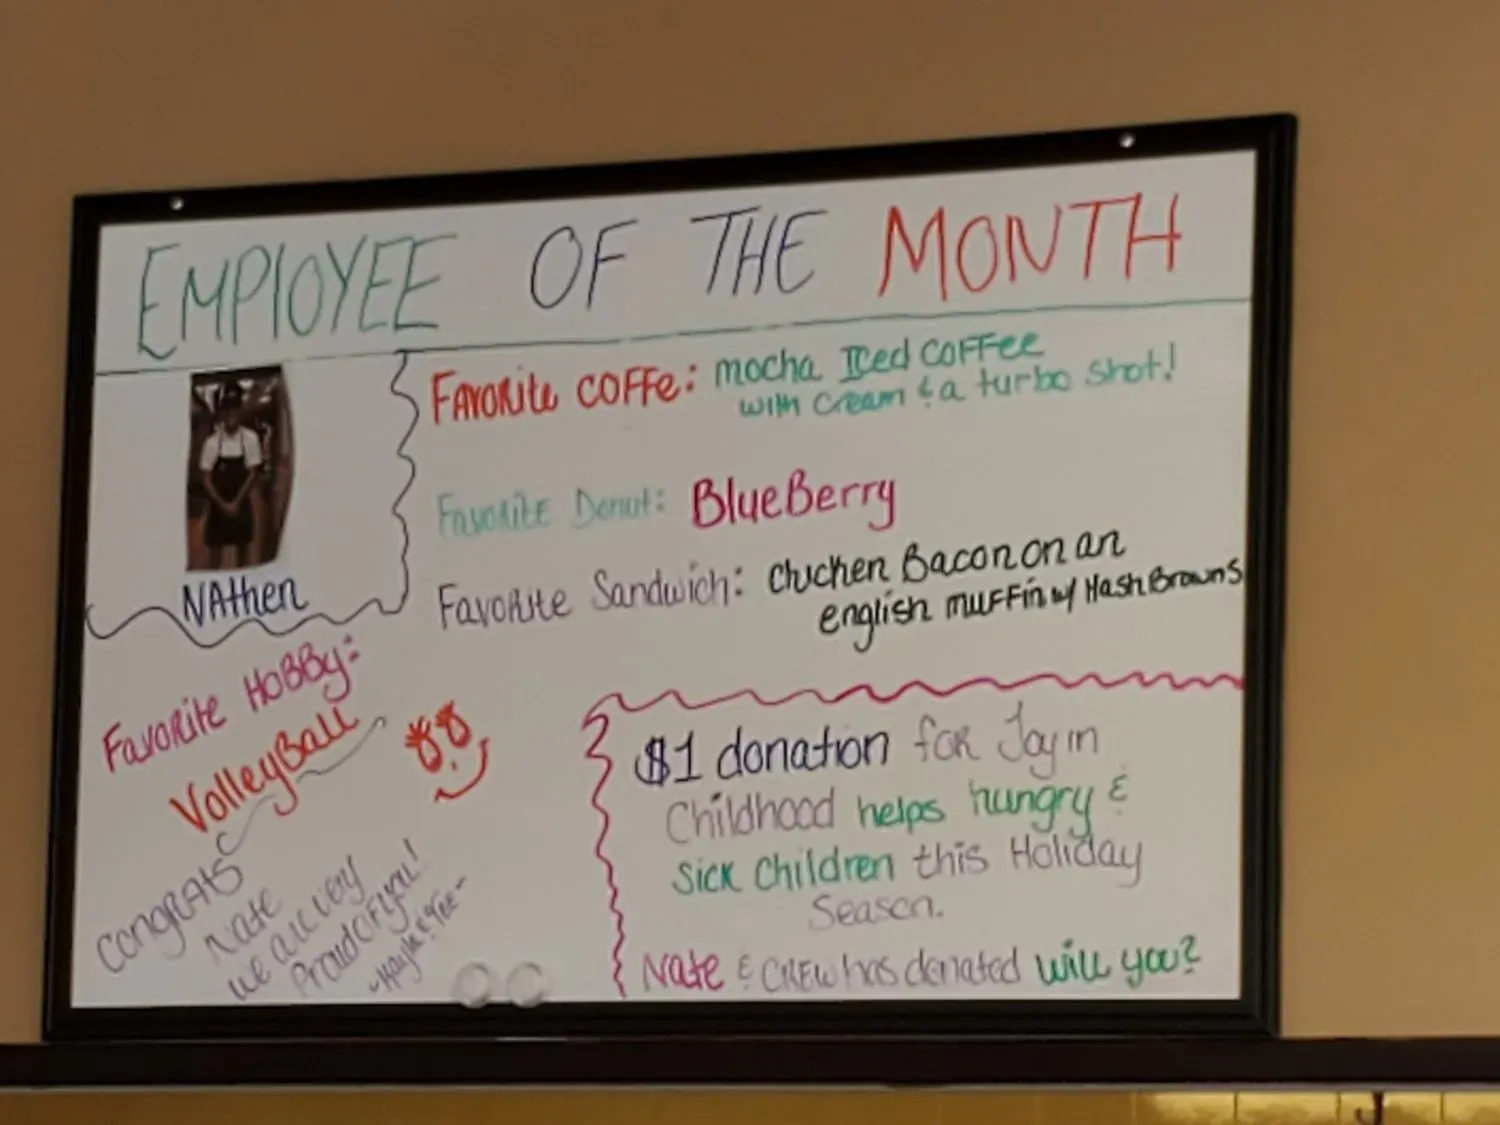 EMPlOYEE OF THE MONTH
FAVORite COFFe: mocha Iced COFFee
with Cream & a turbo shot!
Favorite Donut: BlueBerry
Favorite Sandwich: Chicken Bacon on an
english muffin w/ HashBrowns
NAthen
Favorite HOBBy:
VolleyBall
CongRATS
Nate
we all very
Proud of you!
$1 donation for Joy in
Childhood helps hungry &
Sick Children this Holiday
Season.
Nate & CREW has donated will you?